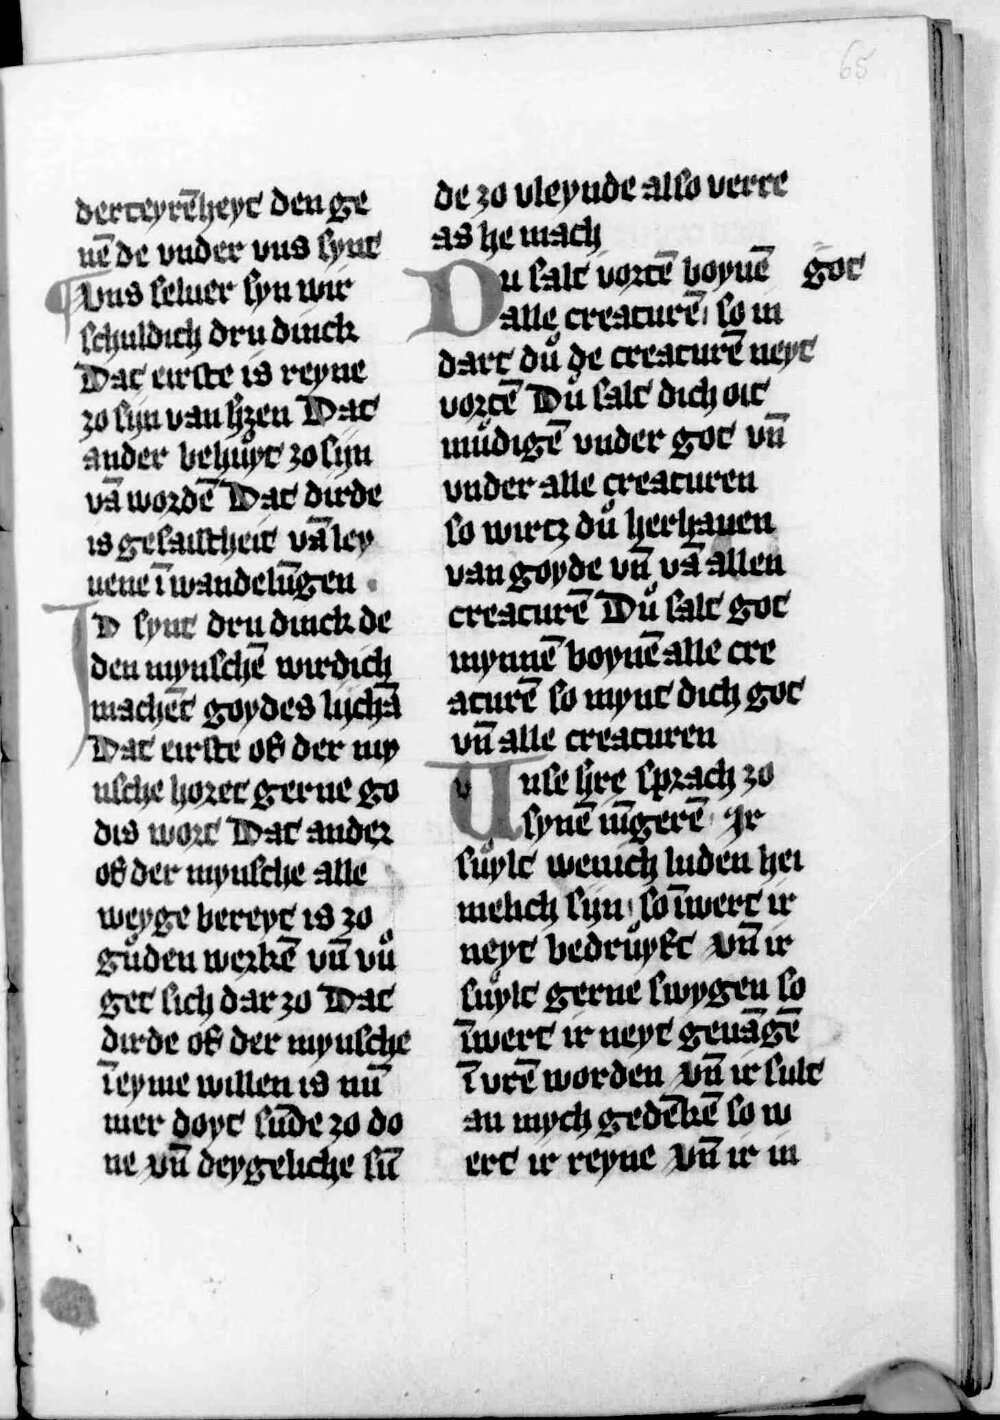 65
derteyrēheyt den ge
nē de vnder vns synt
Vns seluer syn wir
schuldich dru dinck
Dat eirste is reyne
zo sijn van hʒen Dat
ander behuͦyt zo sijn
vā wordē Dat dirde
is gesaistheit vā ley
uene ī wandelūgen
ID synt dru dinck de
den mynschē wirdich
machēt goydes lijchā
Dat eirste of der my
nsche horet gerne go
dis wort Dat ander
of der mynsche alle
weyge bereyt is zo
guͦden werkē vn̄ vuͦ
get sich dar zo Dat
dirde of der mynsche
ī eyme willen is nū
mer doyt sūde zo do
ne vn̄ deygeliche sū
de zo vleynde also verre
as he mach
Du salt vortē boyuē got
alle creaturē so in
dart duͦ de creaturē neyt
vortē Duͦ salt dich oit
muͦdigē vnder got vn̄
vnder alle creaturen
so wirtz duͦ herhauen
van goyde vn̄ vā allen
creaturē Duͦ salt got
mynnē boynē alle cre
aturē so mynt dich got
vn̄ alle creaturen
Unse hʒe sprach zo
synē iūgerē Ir
suͦylt wenich luden hei
melich sijn so īwert ir
neyt bedruͦyft vn̄ ir
suͦylt gerne swygen so
īwert ir neyt geuāgē
ī vrē worden vn̄ ir sult
an mych gedēkē so w
ert ir reyne vn̄ ir in